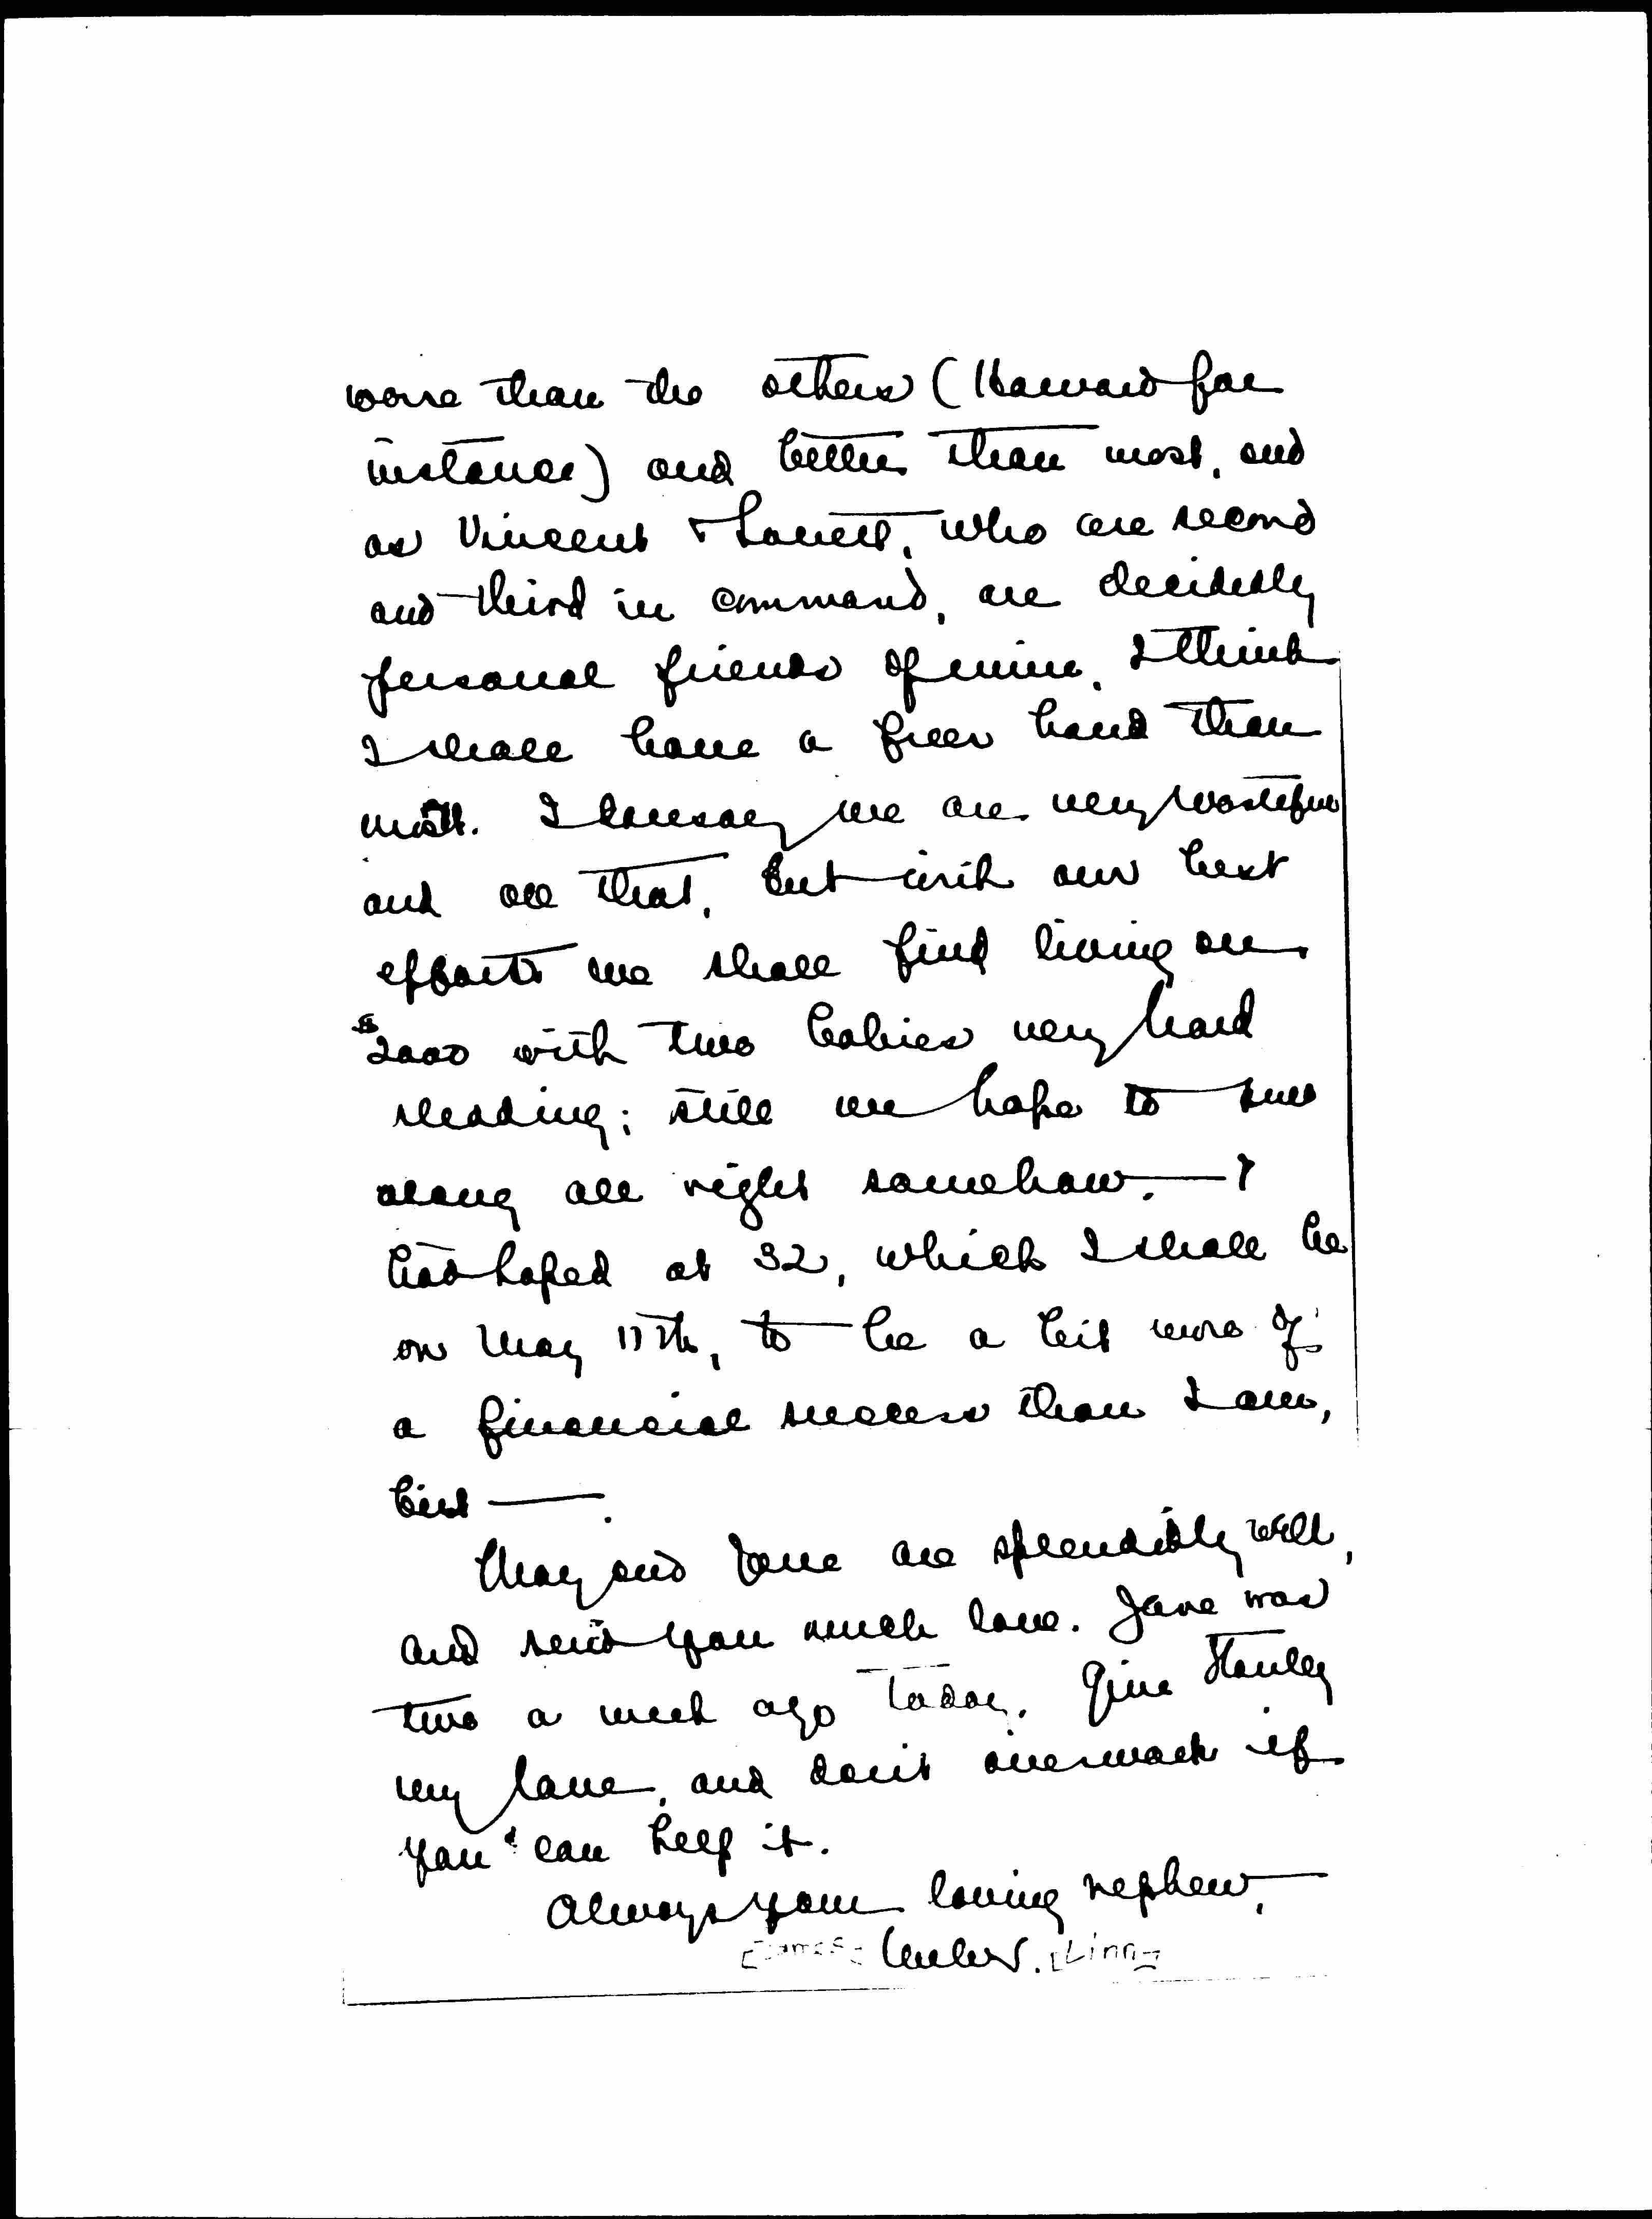 worse than the others (Harvard for
instance) and better than most, and
as Vincent & Lovett, who are second
and third in command, are decidedly
personal friends of mine, I think
I shall have a freer hand than
most. I daresay we are very wasteful
and all that, but with our best
efforts we shall find living on
$2000 with two babies very hard
sledding; still we hope to
along all right somehow. — I
had hoped at 32, which I shall be
on May 11th, to be a bit more of
a financial success than I am,
but —.
May and Jane are splendidly well,
and send you much love. Jane was
two a week ago today. Give Stanley
my love, and don't overwork if
you can help it.
Always your loving nephew,
[James] Weber. [Linn]